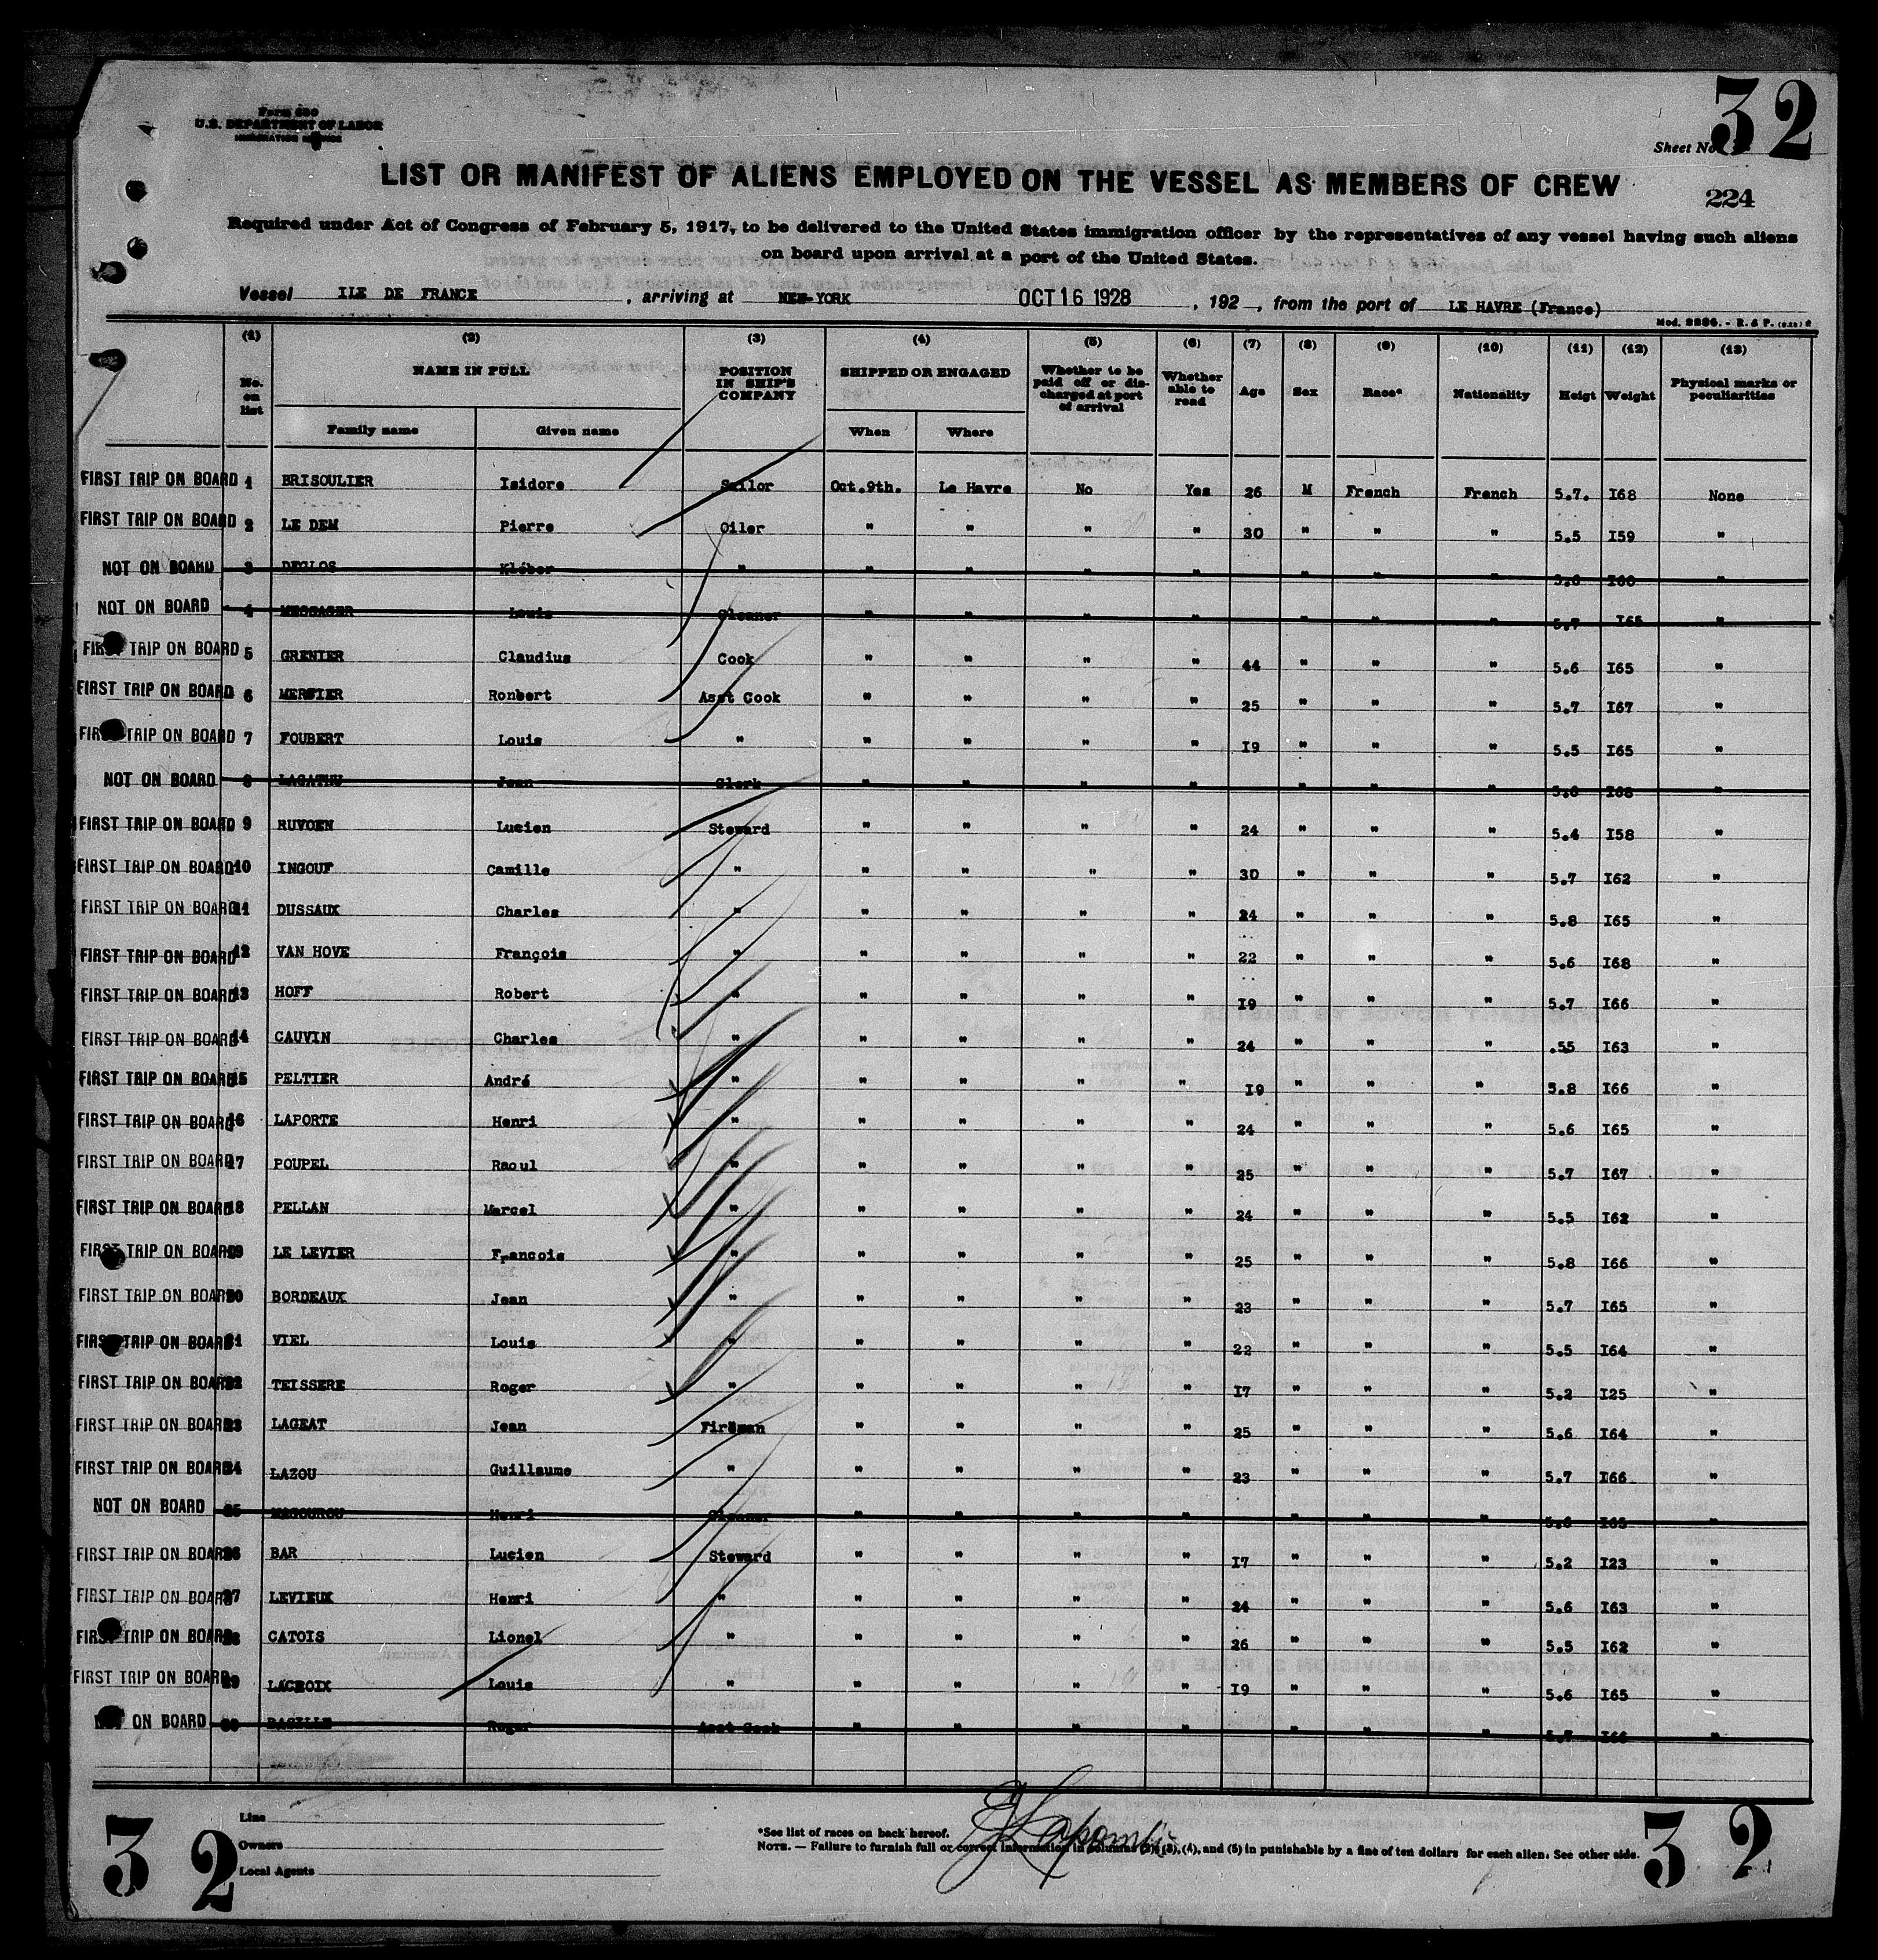 Form 680
U.S. DEPARTMENT OF LABOR
IMMIGRATION SERVICE
Sheet No. 32
224
LIST OR MANIFEST OF ALIENS EMPLOYED ON THE VESSEL AS MEMBERS OF CREW
Required under Act of Congress of February 5, 1917, to be delivered to the United States immigration officer by the representatives of any vessel having such aliens
on board upon arrival at a port of the United States.
Vessel ILE DE FRANCE , arriving at NEW-YORK OCT 16 1928 , 192 , from the port of LE HAVRE (France)
(1) (2) (3) (4) (5) (6) (7) (8) (9) (10) (11) (12) (13)
No. on list NAME IN FULL POSITION IN SHIP'S COMPANY SHIPPED OR ENGAGED Whether to be paid off or discharged at port of arrival Whether able to read Age Sex Race* Nationality Heigt Weight Physical marks or peculiarities
Family name Given name When Where
FIRST TRIP ON BOARD 1 BRISOULIER Isidore Sailor Oct.9th. Le Havre No Yes 26 M French French 5.7. I68 None
FIRST TRIP ON BOARD 2 LE DEM Pierre Oiler " " " " 30 " " " 5.5 I59 "
NOT ON BOARD 3 DEGLOS Kléber " " " " " " " " 5.6 I60 "
NOT ON BOARD 4 MESSAGER Louis Cleaner " " " " " " " 5.7 I65 "
FIRST TRIP ON BOARD 5 GRENIER Claudius Cook " " " " 44 " " " 5.6 I65 "
FIRST TRIP ON BOARD 6 MERSIER Ronbert Asst Cook " " " " 25 " " " 5.7 I67 "
FIRST TRIP ON BOARD 7 FOUBERT Louis " " " " " I9 " " " 5.5 I65 "
NOT ON BOARD 8 LAGATHU Jean Clerk " " " " " " " 5.6 I68 "
FIRST TRIP ON BOARD 9 RUVOEN Lucien Steward " " " " 24 " " " 5.4 I58 "
FIRST TRIP ON BOARD 10 INGOUF Camille " " " " " 30 " " " 5.7 I62 "
FIRST TRIP ON BOARD 11 DUSSAUX Charles " " " " " 24 " " " 5.8 I65 "
FIRST TRIP ON BOARD 12 VAN HOVE François " " " " " 22 " " " 5.6 I68 "
FIRST TRIP ON BOARD 13 HOFF Robert " " " " " I9 " " " 5.7 I66 "
FIRST TRIP ON BOARD 14 CAUVIN Charles " " " " " 24 " " " .55 I63 "
FIRST TRIP ON BOARD 15 PELTIER André " " " " " I9 " " " 5.8 I66 "
FIRST TRIP ON BOARD 16 LAPORTE Henri " " " " " 24 " " " 5.6 I65 "
FIRST TRIP ON BOARD 17 POUPEL Raoul " " " " " 25 " " " 5.7 I67 "
FIRST TRIP ON BOARD 18 PELLAN Marcel " " " " " 24 " " " 5.5 I62 "
FIRST TRIP ON BOARD 19 LE LEVIER François " " " " " 25 " " " 5.8 I66 "
FIRST TRIP ON BOARD 20 BORDEAUX Jean " " " " " 23 " " " 5.7 I65 "
FIRST TRIP ON BOARD 21 VIEL Louis " " " " " 22 " " " 5.5 I64 "
FIRST TRIP ON BOARD 22 TEISSERE Roger " " " " " I7 " " " 5.2 I25 "
FIRST TRIP ON BOARD 23 LAGEAT Jean Fireman " " " " 25 " " " 5.6 I64 "
FIRST TRIP ON BOARD 24 LAZOU Guillaume " " " " " 23 " " " 5.7 I66 "
NOT ON BOARD 25 MAGOUROU Henri Cleaner " " " " " " " 5.6 I65 "
FIRST TRIP ON BOARD 26 BAR Lucien Steward " " " " I7 " " " 5.2 I23 "
FIRST TRIP ON BOARD 27 LEVIEUX Henri " " " " " 24 " " " 5.6 I63 "
FIRST TRIP ON BOARD 28 CATOIS Lionel " " " " " 26 " " " 5.5 I62 "
FIRST TRIP ON BOARD 29 LACROIX Louis " " " " " I9 " " " 5.6 I65 "
NOT ON BOARD 30 BASILLE Roger Asst Cook " " " " " " " 5.7 I66 "
32
Line
Owners
Local Agents
*See list of races on back hereof.
NOTE. — Failure to furnish full or correct information in columns (2), (3), (4), and (5) in punishable by a fine of ten dollars for each alien. See other side.
32